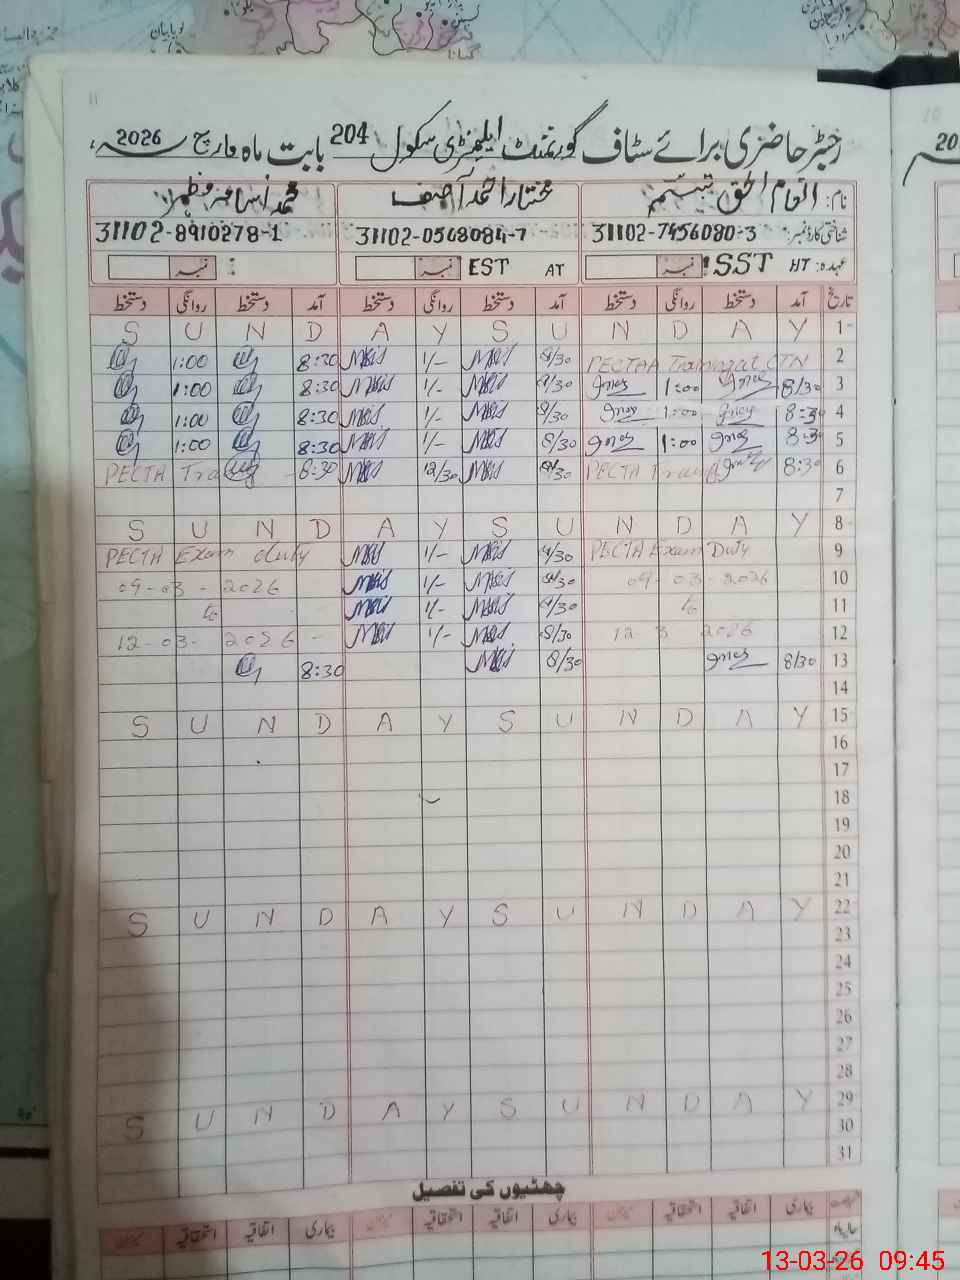 رجسٹر حاضری برائے سٹاف گورنمنٹ ایلیمنٹری سکول 204 بابت ماہ مارچ سنہ 2026ء
نام: انعام الحق تبسم مختار احمد آصف محمد اسامہ مظہر
شناختی کارڈ نمبر: 31102-7456080-3 31102-0568084-7 31102-8910278-1
عہدہ: HT SST نمبر AT EST نمبر نمبر
تاریخ آمد دستخط روانگی دستخط آمد دستخط روانگی دستخط آمد دستخط روانگی دستخط
S U N D A Y S U N D A Y 1
1:00 8:30 1/- 8/30 PECTAA Training at CTN 2
1:00 8:30 1/- 8/30 1:00 8/30 3
1:00 8:30 1/- 8/30 1:00 8:30 4
1:00 8:30 1/- 8/30 1:00 8:30 5
PECTA 8:30 12/30 8/30 PECTA 8:30 6
7
S U N D A Y S U N D A Y 8
PECTA Exam duty 1/- 8/30 PECTA Exam Duty 9
09-03-2026 1/- 8/30 09-03-2026 10
to 1/- 8/30 to 11
12-03-2026 1/- 8/30 12 3 2026 12
8:30 8/30 8/30 13
14
S U N D A Y S U N D A Y 15
16
17
18
19
20
21
S U N D A Y S U N D A Y 22
23
24
25
26
27
28
S U N D A Y S U N D A Y 29
30
31
چھٹیوں کی تفصیل
بیماری اتفاقیہ استحقاقیہ بیماری اتفاقیہ استحقاقیہ بیماری اتفاقیہ استحقاقیہ
13-03-26 09:45